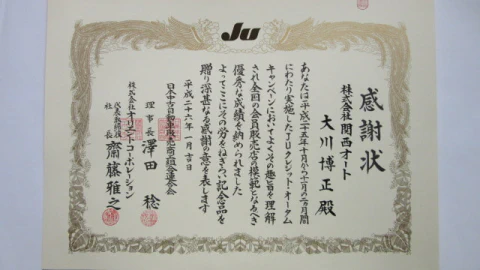 Ju
感謝状
株式会社 関西オート
大川博正 殿
あなたは平成二十五年十月から十一月の二ヵ月間
にわたり実施したJUクレジット・オータム
キャンペーンにおいてよくその趣旨を理解
され全国の会員販売店の模範となるべき
優秀な成績を納められました
よってここにその労をねぎらい記念品を
贈り深甚なる感謝の意を表します
平成二十六年一月吉日
日本中古自動車販売商工組合連合会
理事長 澤田 稔
株式会社オリエントコーポレーション
代表取締役社長 齋藤雅之